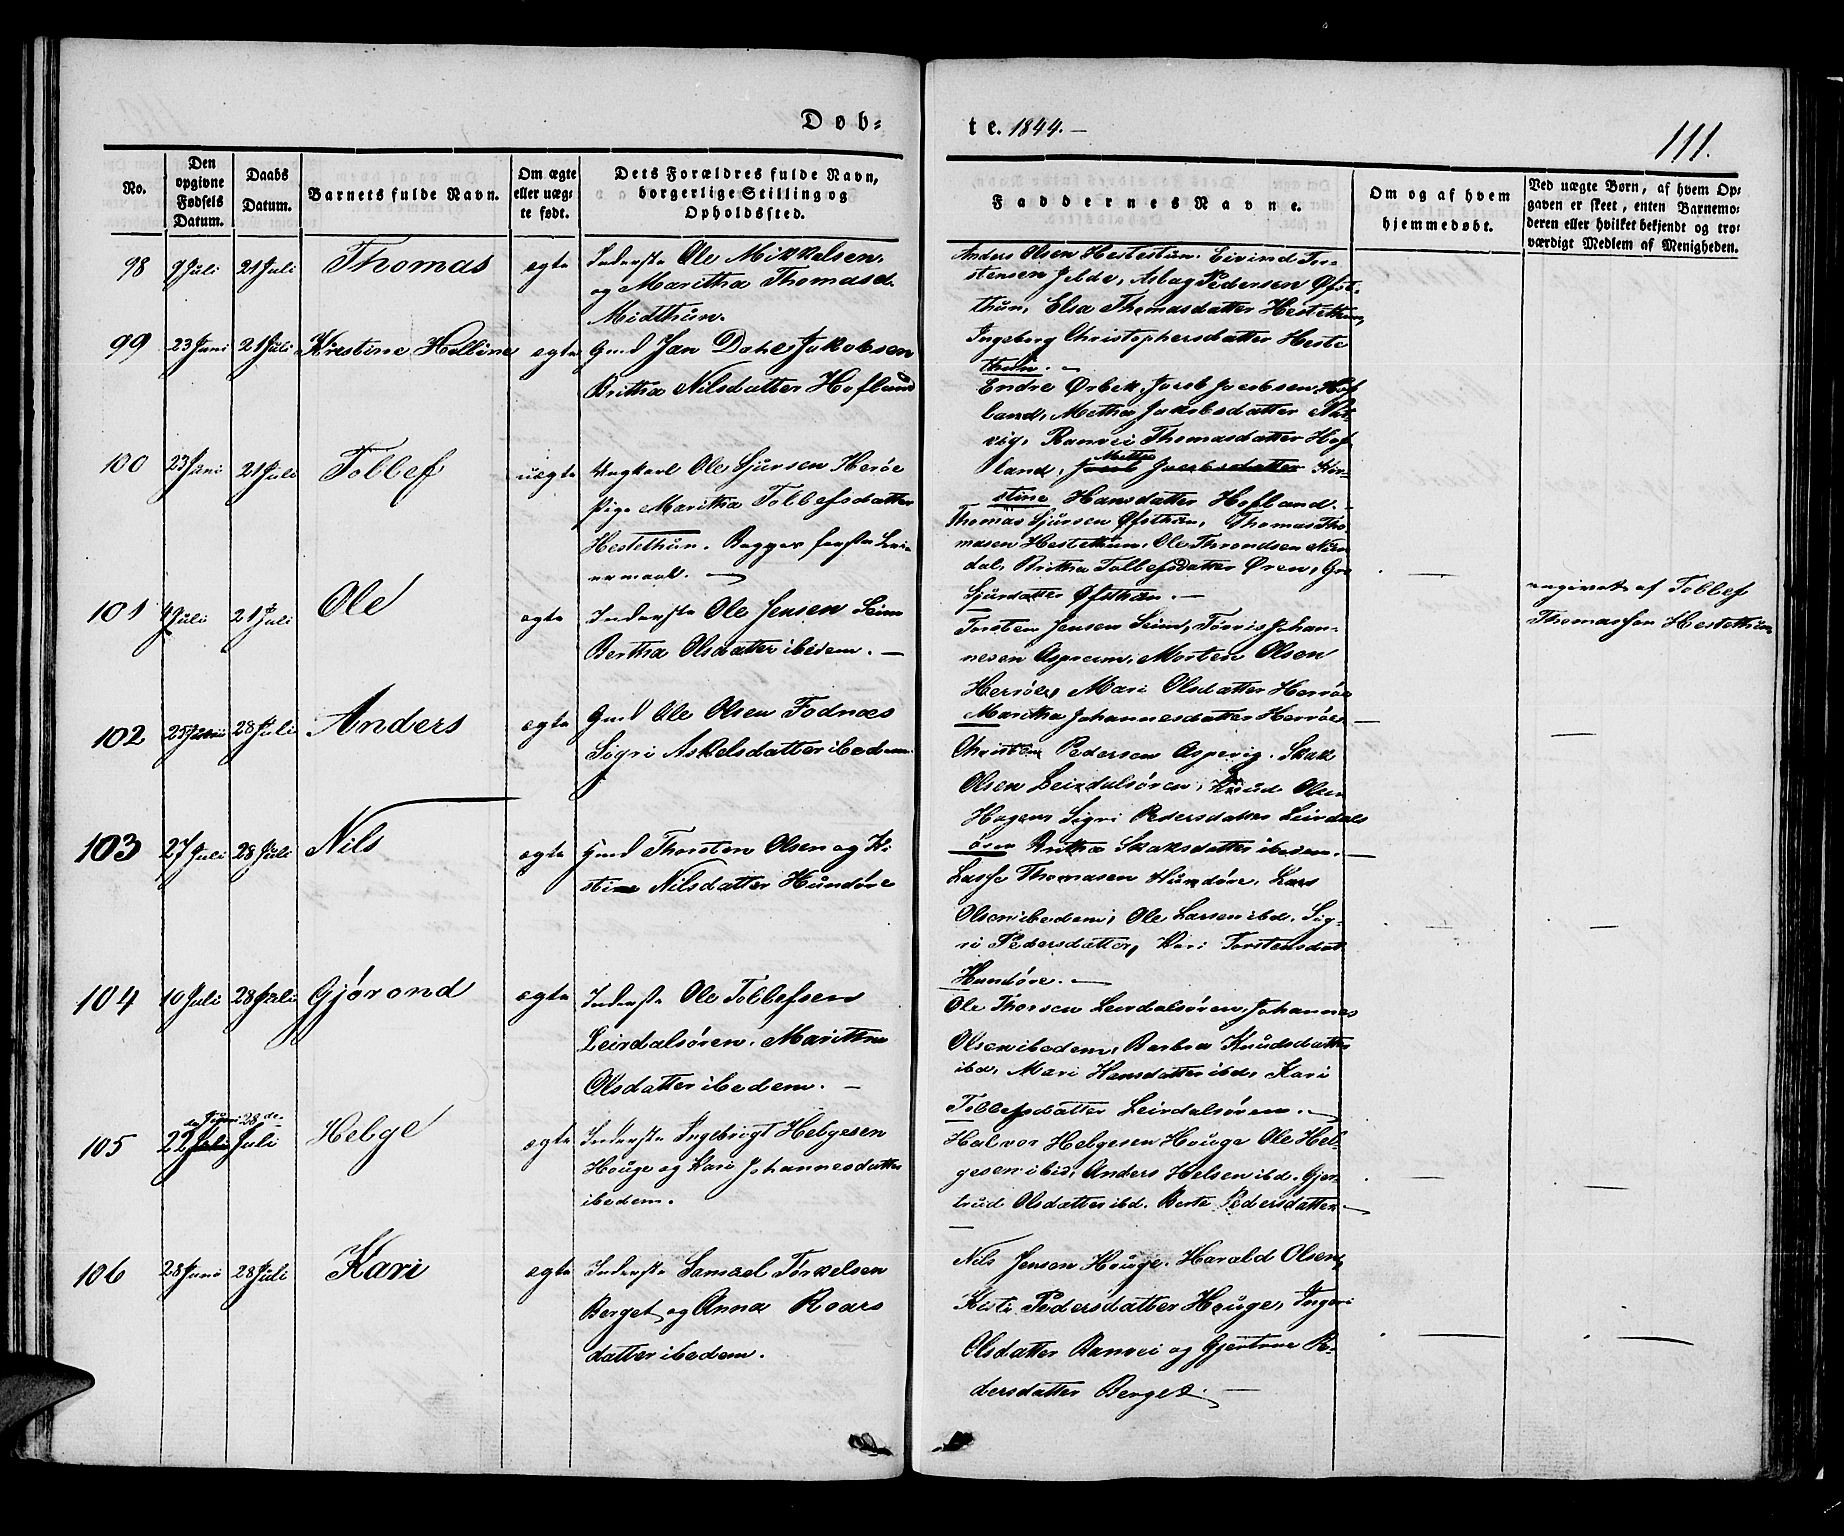 Døb-
te. 1844. —
111.
No.
Den opgivne Fødsels Datum.
Daabs Datum.
Barnets fulde Navn.
Om ægte eller uægte født.
Dets Forældres fulde Navn, borgerlige Stilling og Opholdssted.
Faddernes Navne.
Om og af hvem hjemmedøbt.
Ved uægte Børn, af hvem Opgaven er skeet, enten Barnemoderen eller hvilket bekjendt og troværdigt Medlem af Menigheden.
98 9 Juli 21 Juli Thomas ægte Inderste Ole Mikkelsen,
og Maritha Thomasd.
Midthun.
Anders Olsen Hestethun. Eivind Tor-
stensen Jelde, Aslag Pedersen Øfst-
thun, Elsa Thomasdatter Hestethun,
Ingeborg Christophersdatter Heste
thun. —
99 23 Juni 21 Juli Krestine Helline ægte Gmd Jan Dahl Jakobsen
Brittha Nilsdatter Hofland
Endre Ørbek, Jacob Jacobsen Hof
land, Metha Jakobsdatter
Ranvei Thomasdatter Hof
land, Mettha Jacobsdatter Kir-
stine Hansdatter Hofland. —
100 23 Juni 21 Juli Tollef uægte Ungkarl Ole Sjursen Herøe
Pige Maritha Tollefsdatter
Hestethun. Begges første Leier
maal. —
Thomas Sjursen Øfsthun, Thomas Tho
masen Hestethun, Ole Throndsen
dal, Brittha Tollefsdatter Øren,
Sjursdatter Øfsthun. —
—
angivet af Tollef
Thomassen Hestethun
101 4 Juli 21 Juli Ole ægte Inderste Ole Jensen Seim
Bertha Olsdatter ibidem. —
Torsten Jensen Seim, Tørris Johan-
nesen Asperim, Morten Olsen
Herrøe, Mari Olsdatter Herrøe
Maritha Johannesdatter Herrøe —
102 25 Juni 28 Juli Anders ægte Gmd Ole Olsen Fodnæs
Sigri Askelsdatter ibedem.
Christen Pedersen Aspevig. Skak
Olsen Leirdalsøren, Knud Olsen
Hagen, Sigri Pedersdatter Leirdals
øren Brita Skaksdatter ibedem. —
—
103 27 Juli 28 Juli Nils ægte Gmd Thorsten Olsen og Ki
stine Nilsdatter Hundøre
Lasse Thomasen Hundøre, Lars
Olsen ibedem, Ole Larsen ibd. Sig-
ri Pedersdatter, Kari Torstensdat
Hundøre. —
— —
104 10 Juli 28 Juli Gjørond ægte Inderste Ole Tollefsen
Leirdalsøren. Marittha
Olsdatter ibedem. —
Ole Thorsen Leirdalsøren, Johannes
Olsen ibedem, Barbra Knudsdatter
ibd, Mari Hansdatter ibd, Kari
Tollefsdatter Leirdalsøren. —
105 22 de Juni 28 de Juli Helge ægte Inderste Ingebrigt Helgesen
Houge og Kari Johannesdatter
ibedem.
Halvor Helgesen Houge Ole Hel-
gesen ibid, Anders Helsen ibd. Gjer-
trud Olsdatter ibd. Berte Pedersdatter —
— —
106 28 Juni 28 Juli Kari ægte Inderste Samuel Tørkelsen
Berget og Anna Roars
datter ibedem.
Nils Jensen Houge. Harald Olsen,
Kisti Pedersdatter Houge, Ingeri
Olsdatter Ranvei og Gjertrue Pe-
dersdatter Berget. —
— —